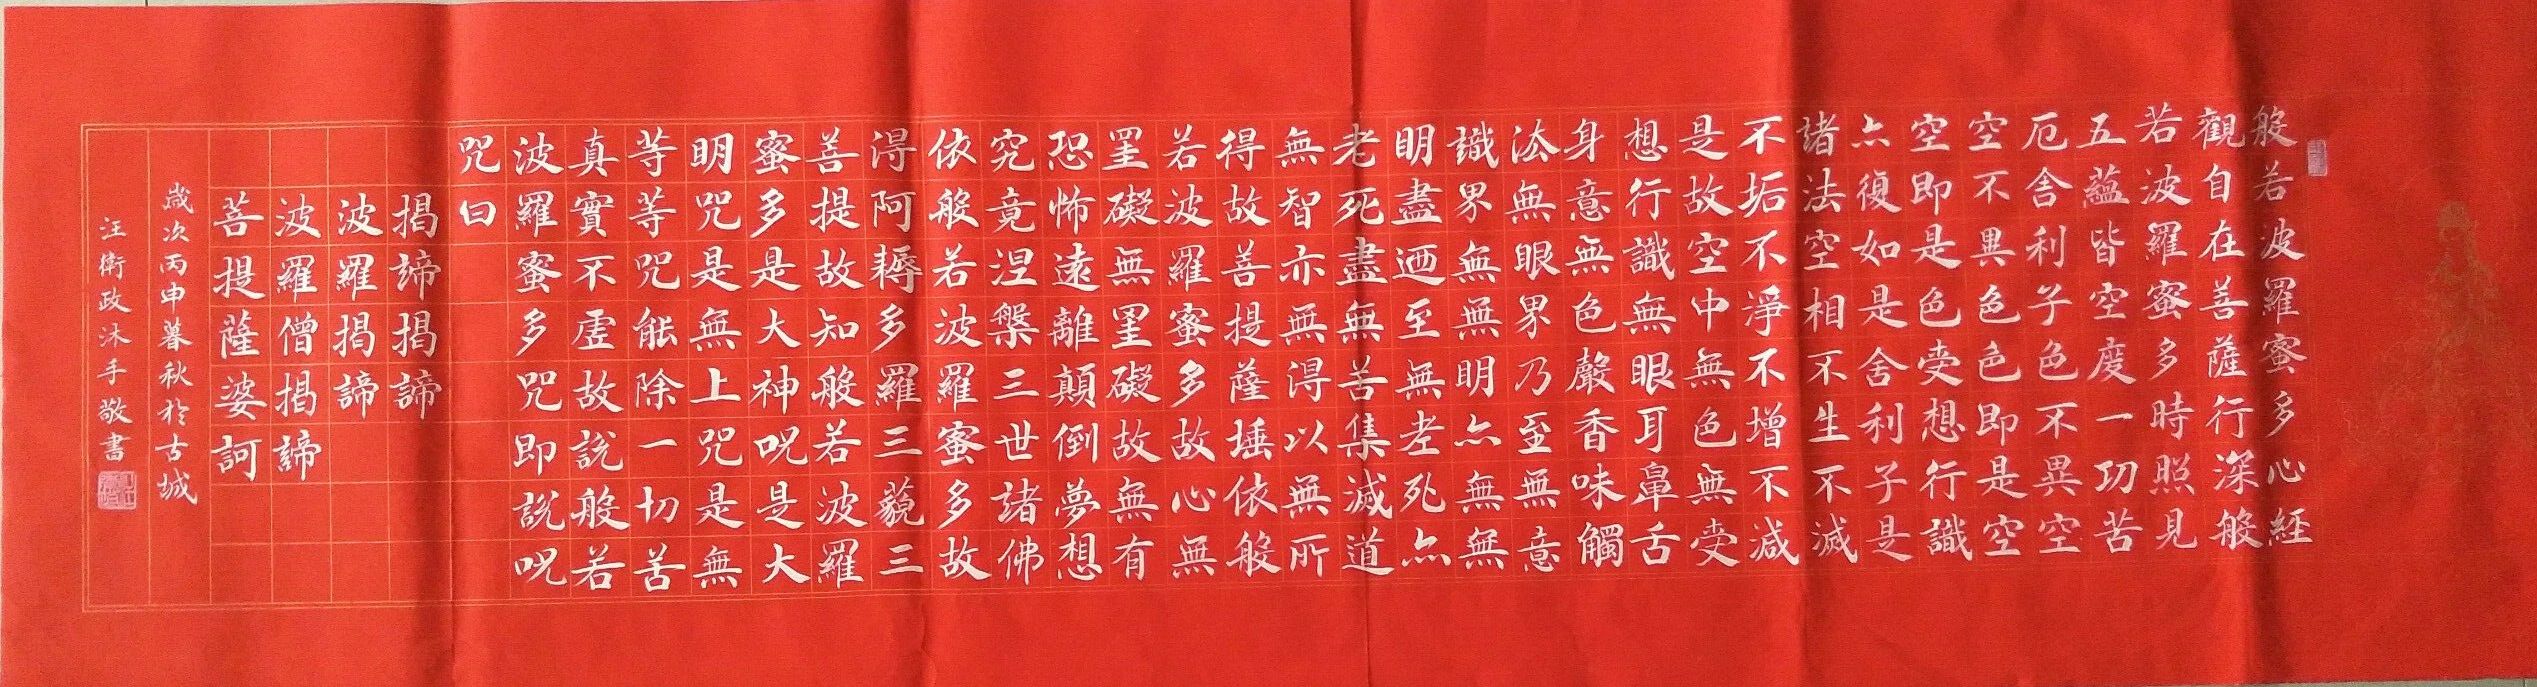 般若波羅蜜多心経
觀自在菩薩行深般
若波羅蜜多時照見
五蘊皆空度一切苦
厄舍利子色不異空
空不異色色即是空
空即是色受想行識
亦復如是舍利子是
諸法空相不生不滅
不垢不淨不增不減
是故空中無色無受
想行識無眼耳鼻舌
身意無色聲香味觸
法無眼界乃至無意
識界無無明亦無無
明盡迺至無老死亦
老死盡無苦集滅道
無智亦無得以無所
得故菩提薩埵依般
若波羅蜜多故心無
罣礙無罣礙故無有
恐怖遠離顛倒夢想
究竟涅槃三世諸佛
依般若波羅蜜多故
得阿耨多羅三藐三
菩提故知般若波羅
蜜多是大神呪是大
明咒是無上咒是無
等等咒能除一切苦
真實不虛故說般若
波羅蜜多咒即說呪
咒曰
揭諦揭諦
波羅揭諦
波羅僧揭諦
菩提薩婆訶
歲次丙申暮秋於古城
汪衛政沐手敬書